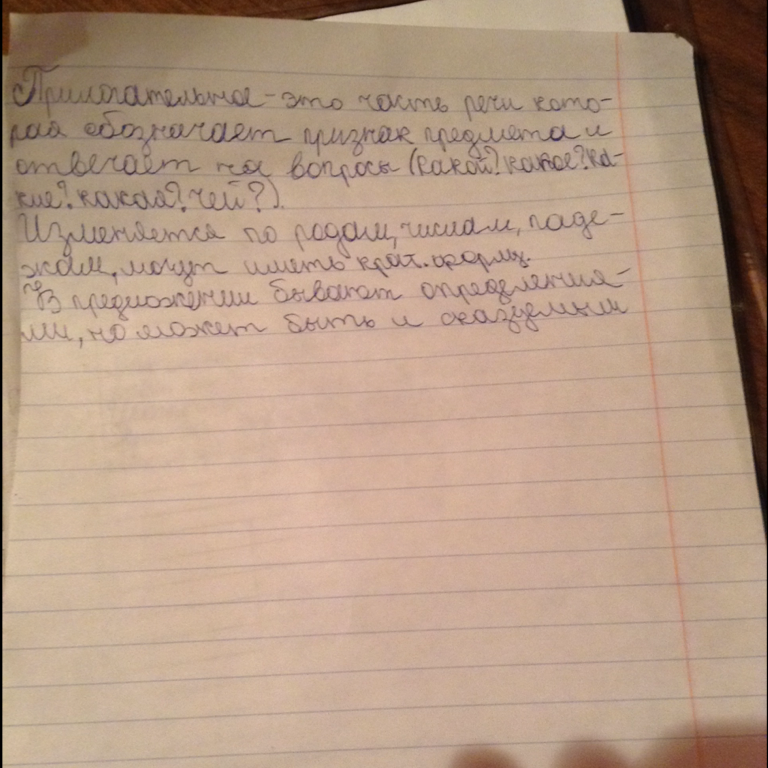 Прилогательное - это часть речи кото-
рая обозначает признак предмета и
отвечает на вопросы (какой? какое? ка-
кие? какая? чей?).
Изменяется по родам, числам, паде-
жам, могут иметь крат. форму.
В предложении бывают определения-
ми, но может быть и сказуемым